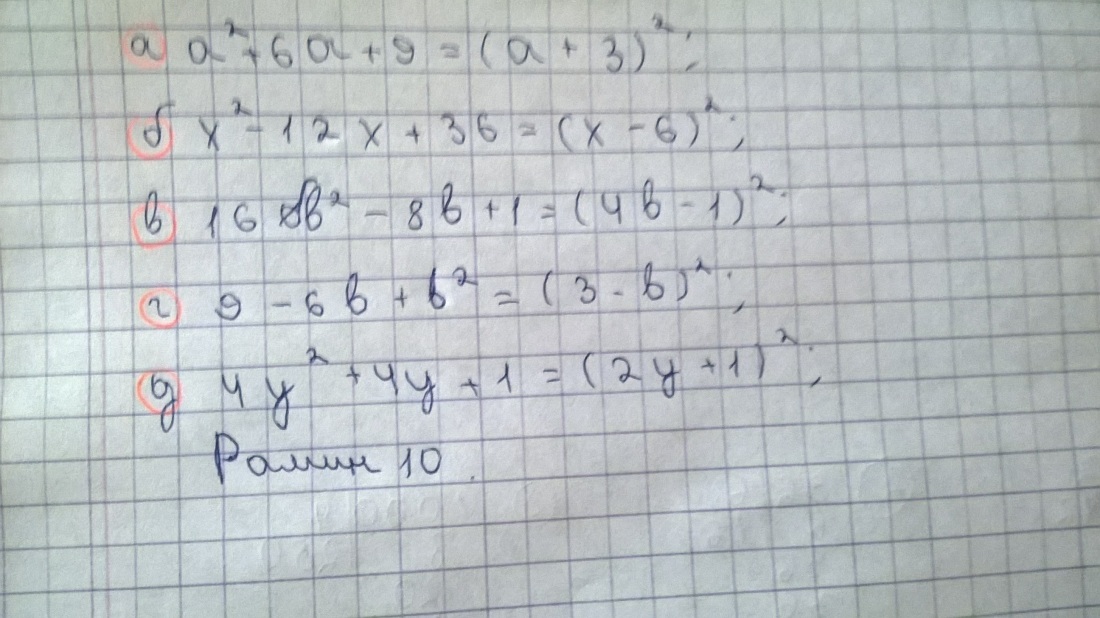 а a² + 6a + 9 = (a + 3)²;
б x² - 12x + 36 = (x - 6)²;
в 16b² - 8b + 1 = (4b - 1)²;
г 9 - 6b + b² = (3 - b)²;
д 4y² + 4y + 1 = (2y + 1)²;
Рамин 10.